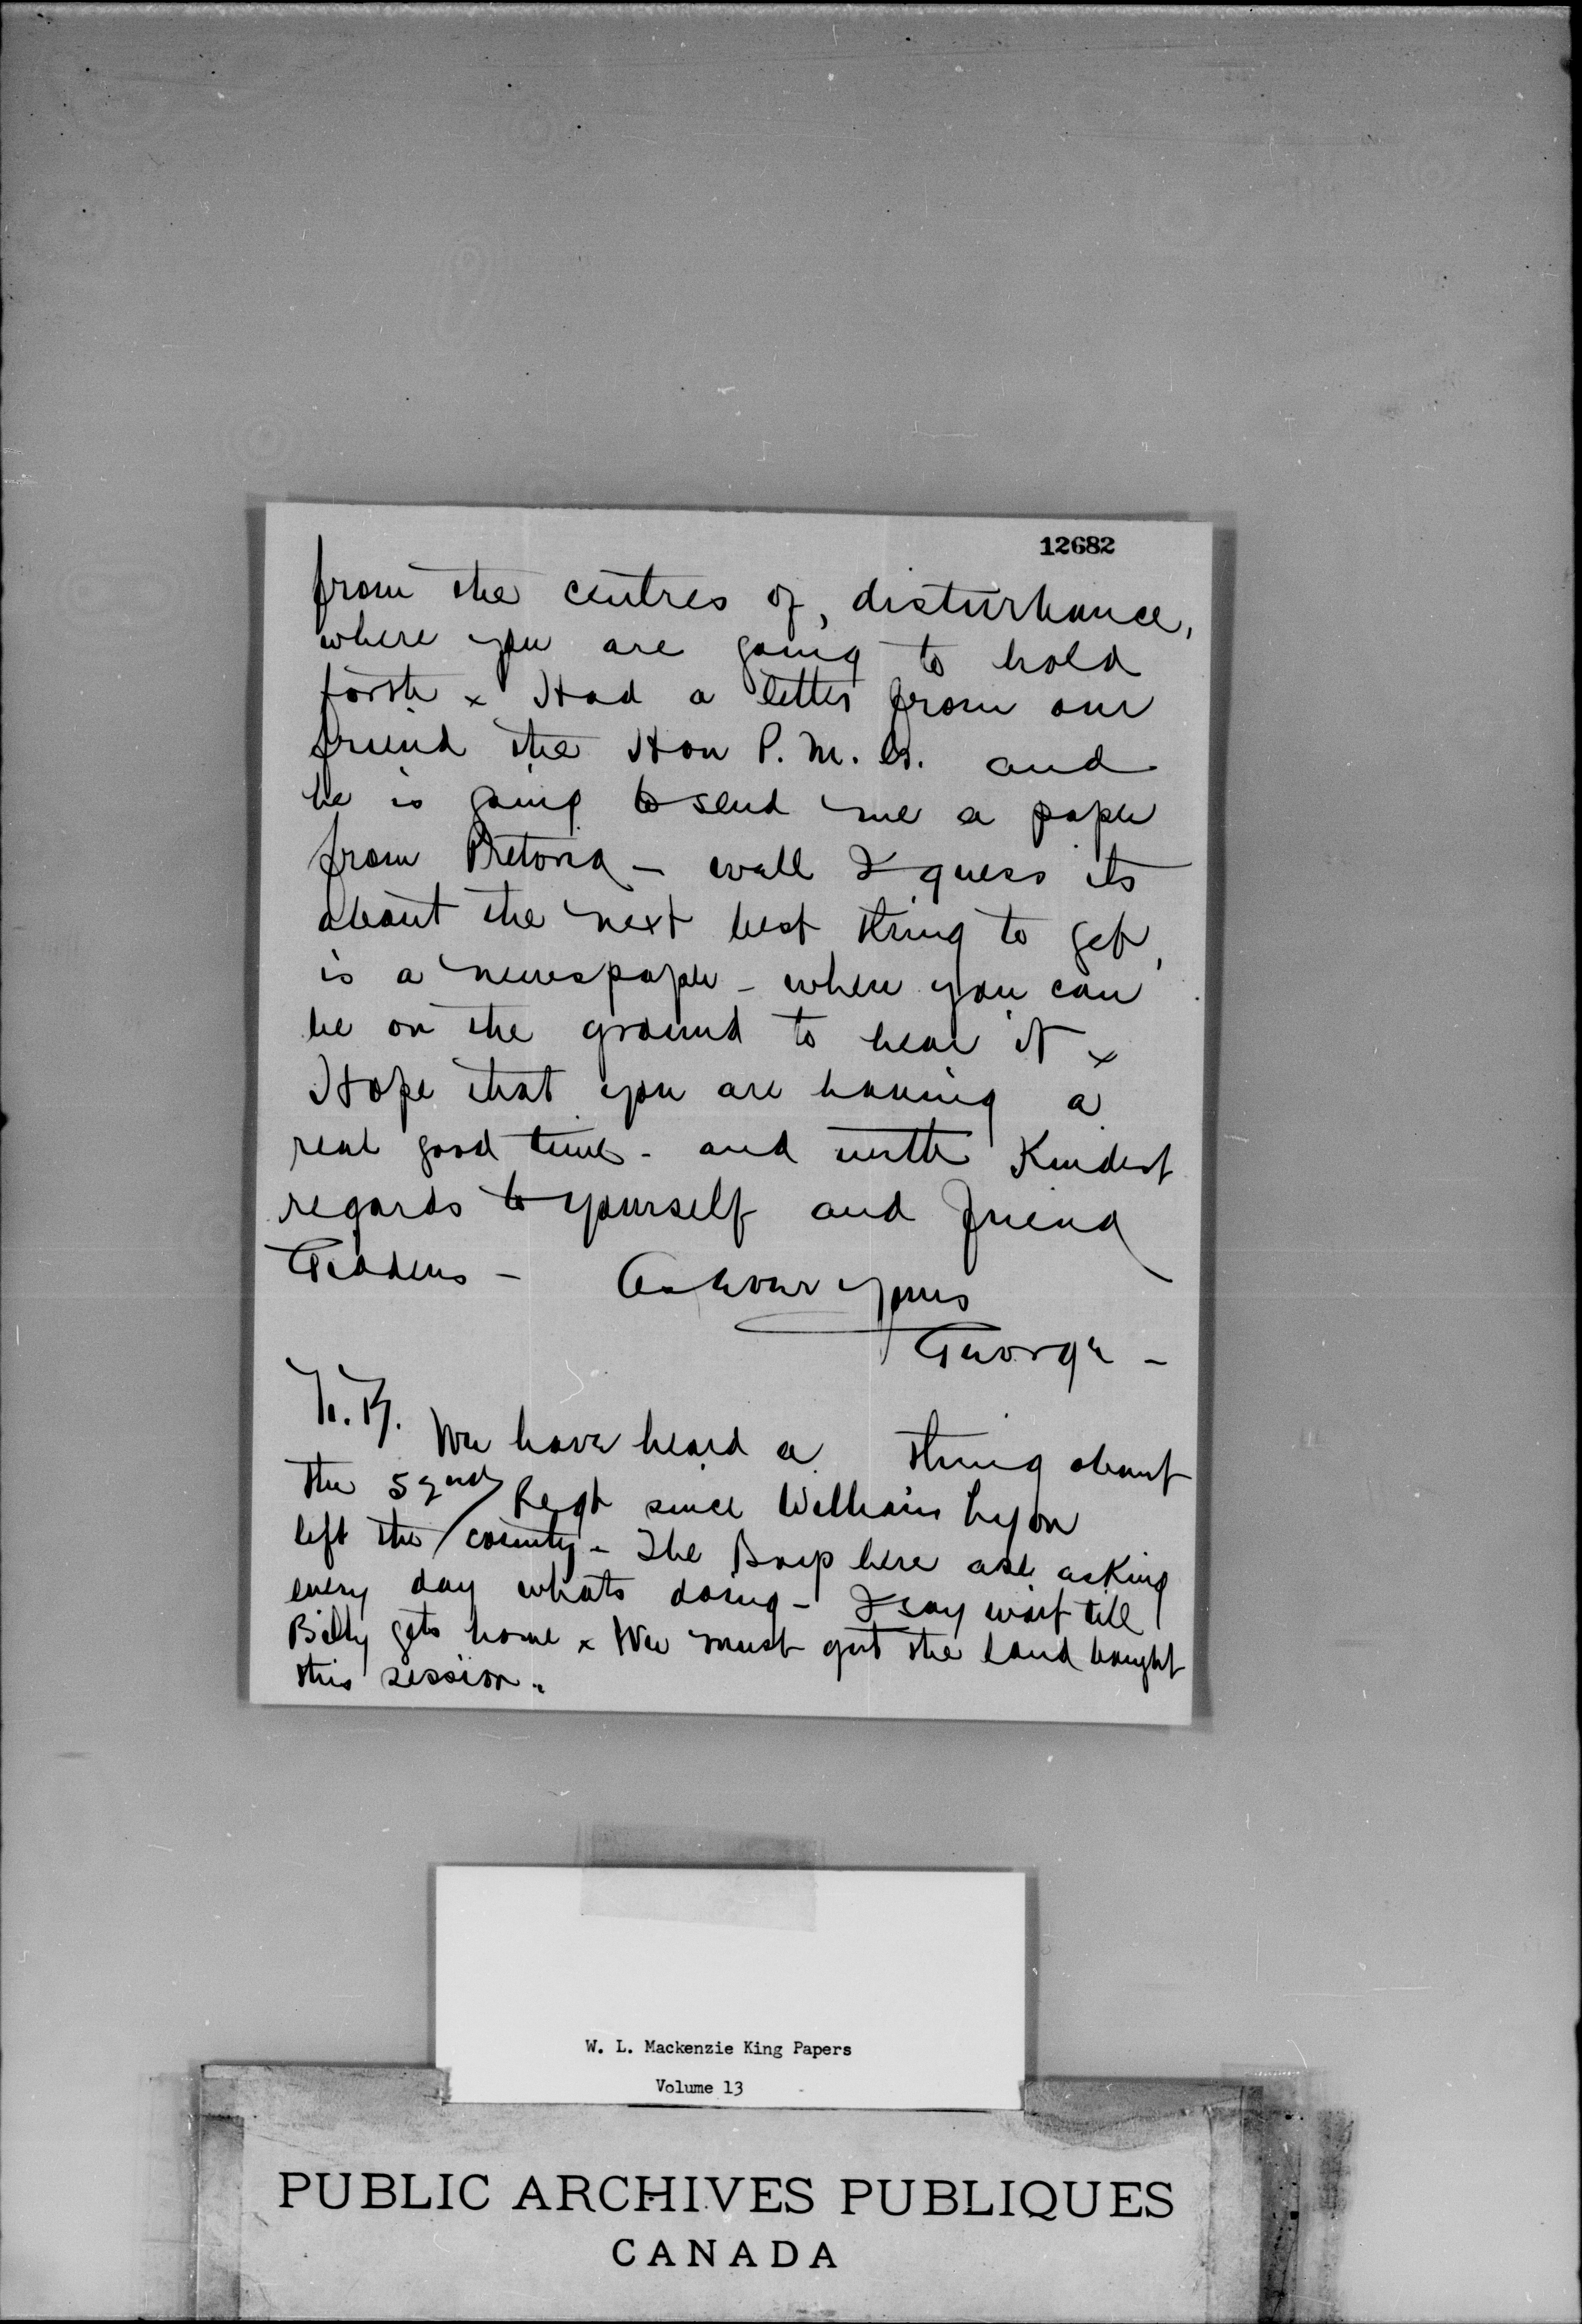 12682
from the centres of, disturbance,
where you are going to hold
forth x Had a letter from our
friend the Hon P. M. G. and
he is going to send me a paper
from Pretoria - well I guess its
about the next best thing to get,
is a newspaper - when you can
be on the ground to hear it x
Hope that you are having a
real good time - and with Kindest
regards to yourself and friend
Giddens - As ever yours
George -
N.B. We have heard a thing about
the 52nd Regt since William Lyon
left the county - The Boys here are asking
every day whats doing - I say wait till
Billy gets home x We must get the land bought
this session.
W. L. Mackenzie King Papers
Volume 13
PUBLIC ARCHIVES PUBLIQUES
CANADA